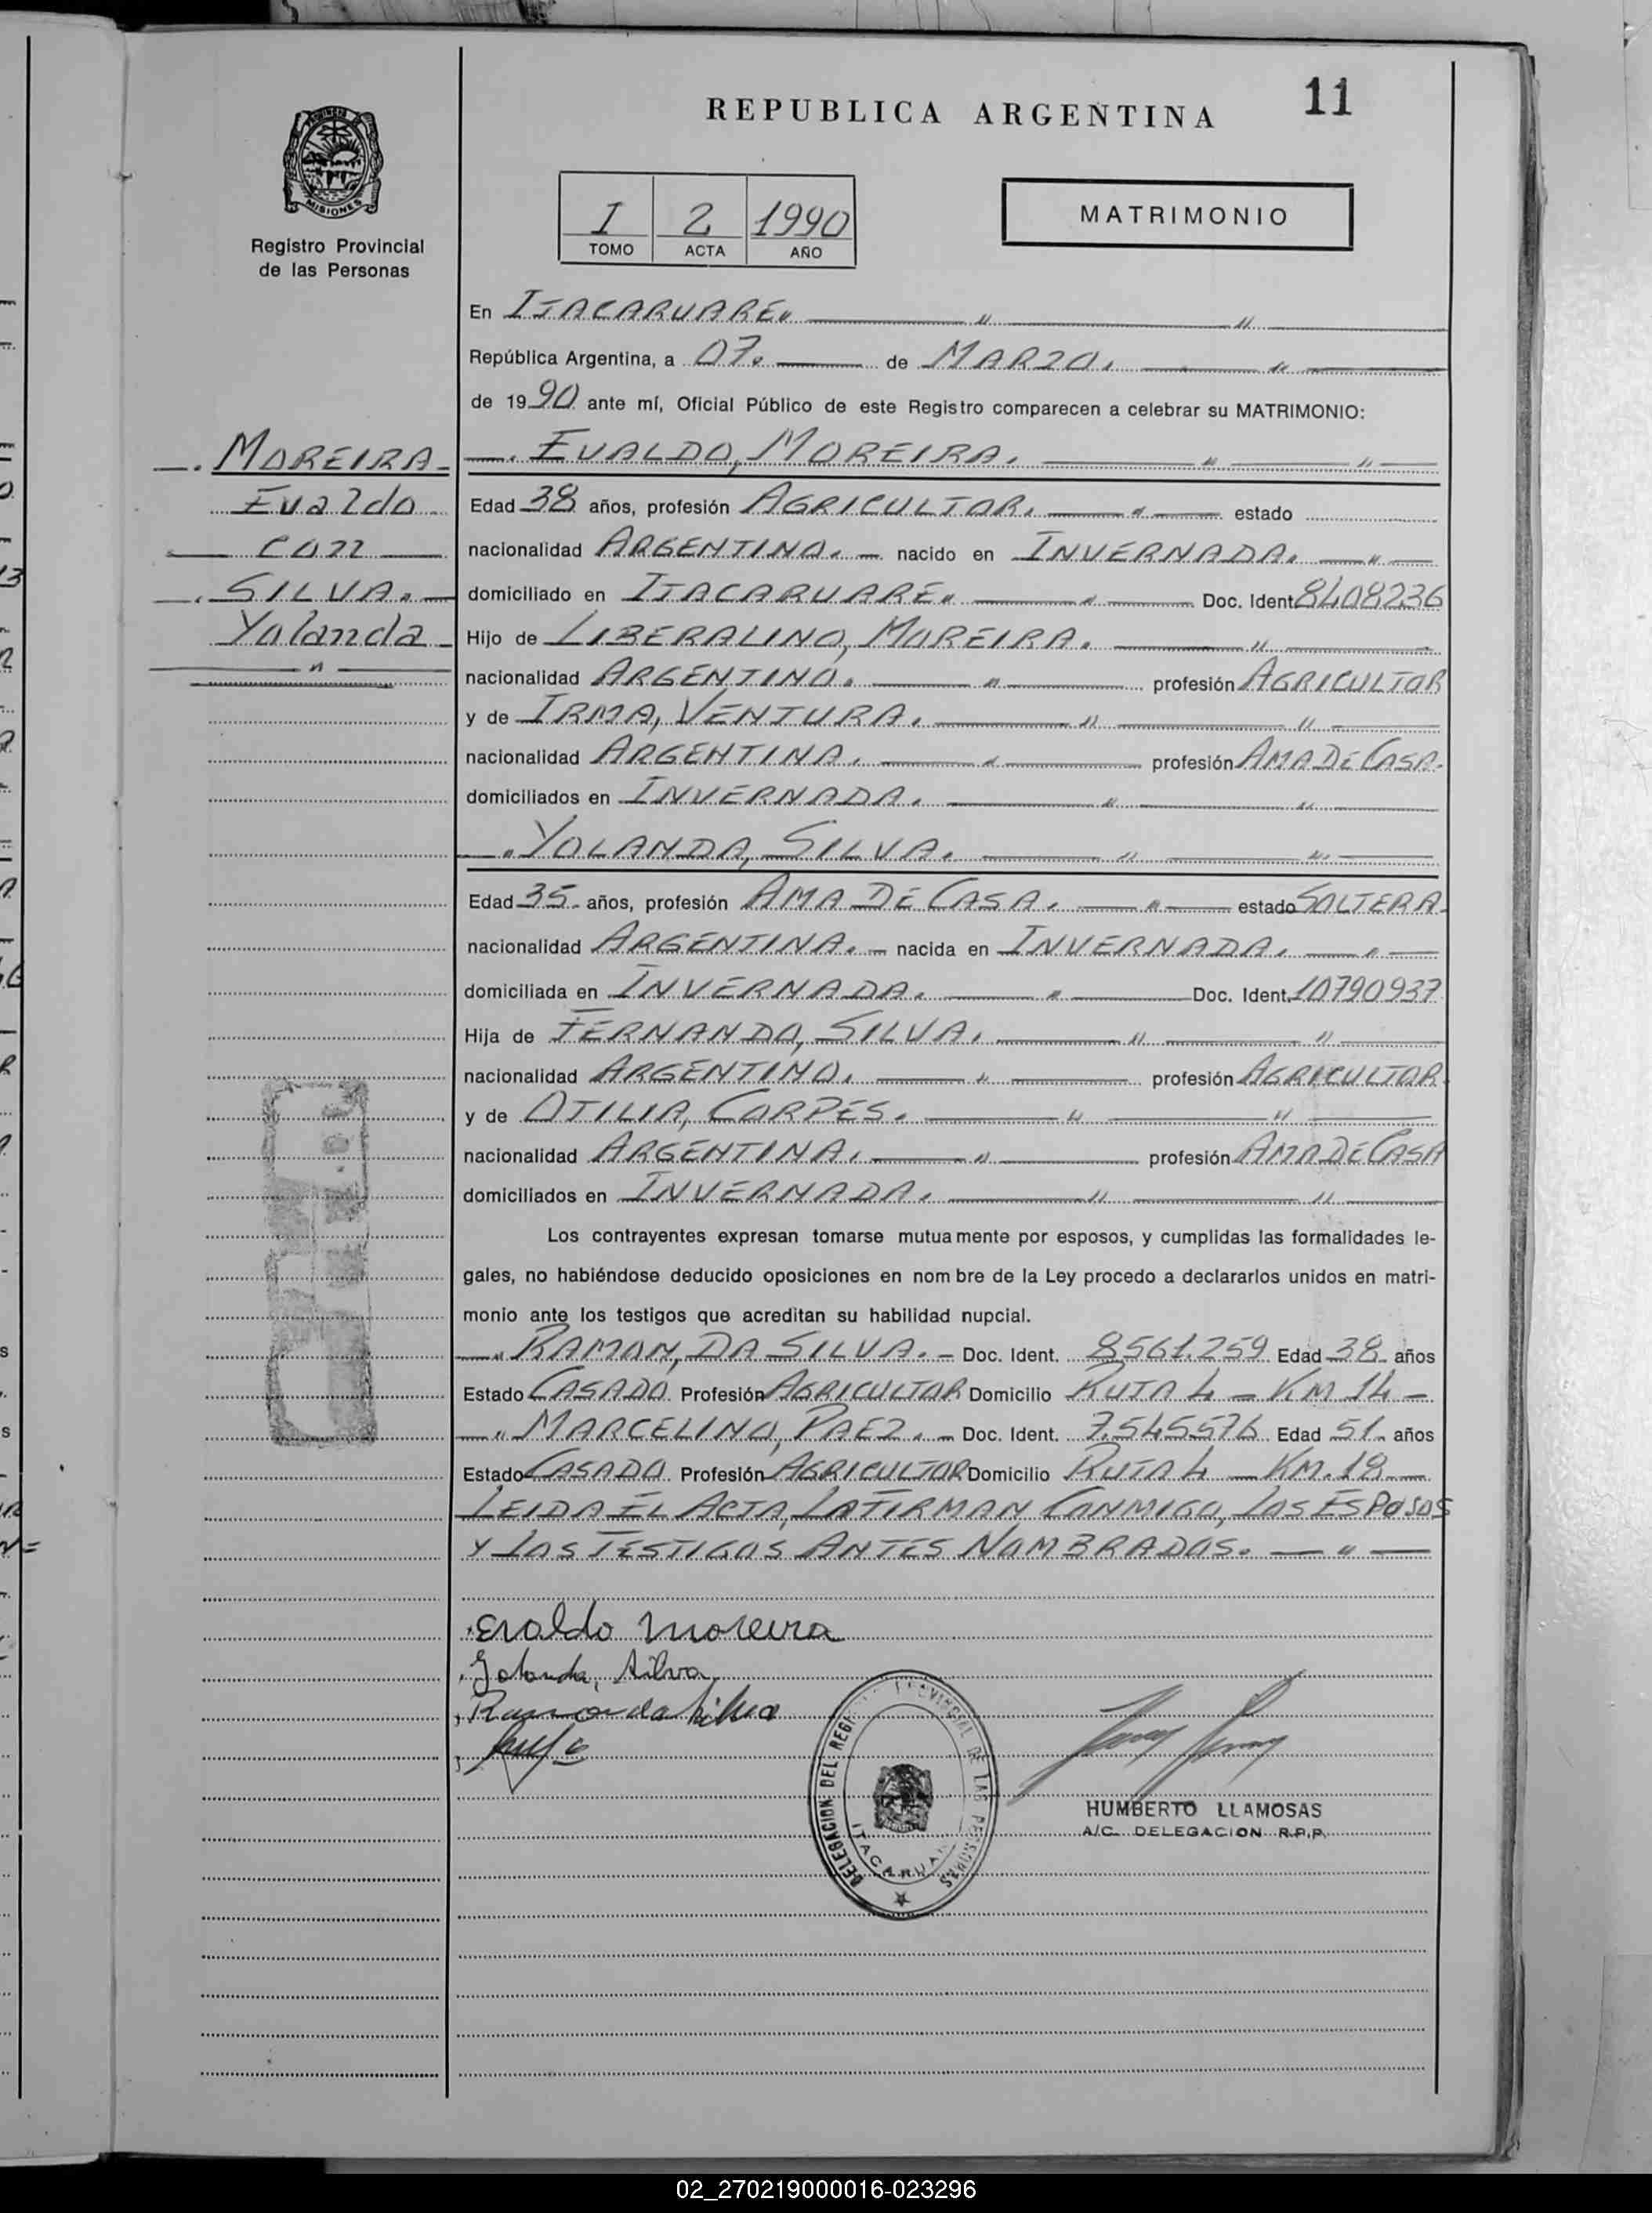 REPUBLICA ARGENTINA
11
MISIONES
Registro Provincial
de las Personas
I 2 1990
TOMO ACTA AÑO
MATRIMONIO
En ITACARUARE.
República Argentina, a 07. de MARZO.
de 1990 ante mí, Oficial Público de este Registro comparecen a celebrar su MATRIMONIO:
MOREIRA
Evaldo
con
SILVA.
Yolanda
EVALDO, MOREIRA.
Edad 38 años, profesión AGRICULTOR. estado
nacionalidad ARGENTINO. nacido en INVERNADA.
domiciliado en ITACARUARE. Doc. Ident. 8408236
Hijo de LIBERALINO, MOREIRA.
nacionalidad ARGENTINO. profesión AGRICULTOR
y de IRMA, VENTURA.
nacionalidad ARGENTINA. profesión AMA DE CASA.
domiciliados en INVERNADA.
YOLANDA, SILVA.
Edad 35 años, profesión AMA DE CASA. estado SOLTERA
nacionalidad ARGENTINA. nacida en INVERNADA.
domiciliada en INVERNADA. Doc. Ident. 10790937
Hija de FERNANDO, SILVA.
nacionalidad ARGENTINO. profesión AGRICULTOR.
y de OTILIA, CORPES.
nacionalidad ARGENTINA. profesión AMA DE CASA
domiciliados en INVERNADA.
Los contrayentes expresan tomarse mutuamente por esposos, y cumplidas las formalidades le-
gales, no habiéndose deducido oposiciones en nombre de la Ley procedo a declararlos unidos en matri-
monio ante los testigos que acreditan su habilidad nupcial.
RAMON, DA SILVA. Doc. Ident. 8561.259 Edad 38 años
Estado CASADO Profesión AGRICULTOR Domicilio RUTA 4 - KM 14 -
MARCELINO, PAEZ. Doc. Ident. 7.545576 Edad 51 años
Estado CASADO Profesión AGRICULTOR Domicilio RUTA 4 - KM. 18
LEIDA EL ACTA, LA FIRMAN CONMIGO, LOS ESPOSOS
Y LOS TESTIGOS ANTES NOMBRADOS.
Evaldo Moreira
Yolanda, Silva
Ramon da Silva
DELEGACION DEL REGI PROVINCIAL DE LAS PERSONAS
ITACARUA
HUMBERTO LLAMOSAS
A/C. DELEGACION R.P.P.
02_270219000016-023296